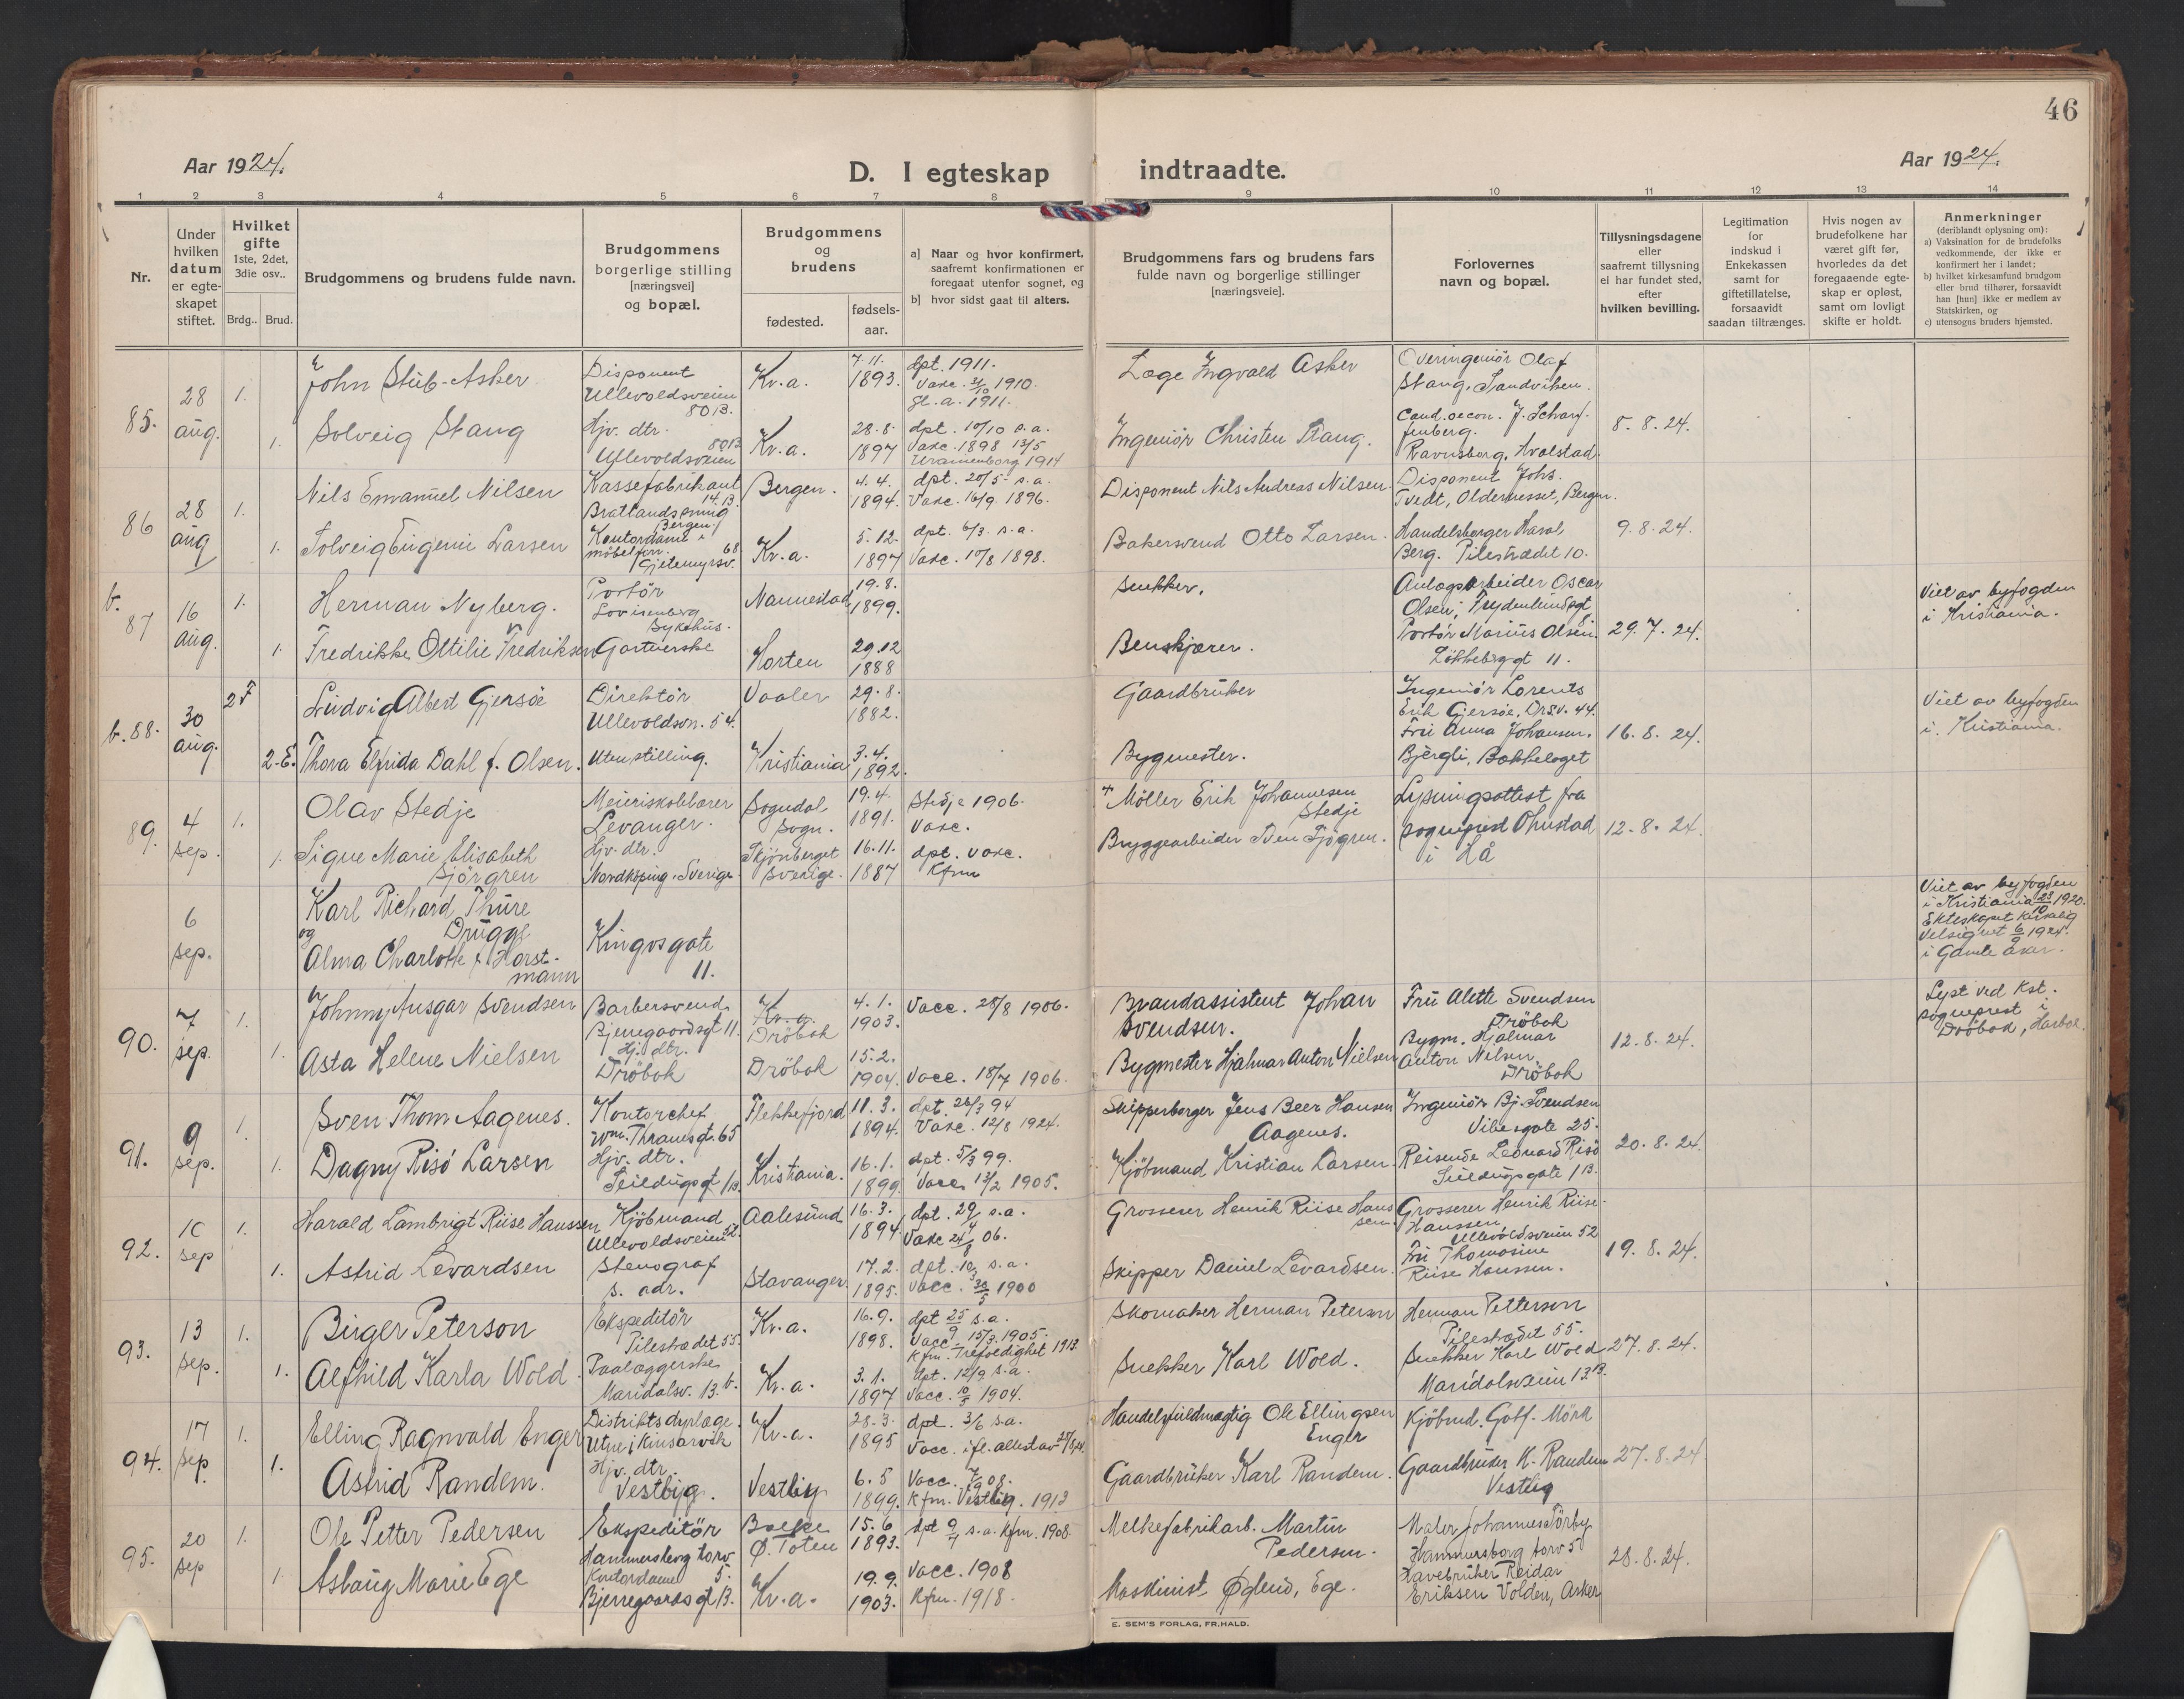 46
Aar 1924.
D. I egteskap indtraadte.
Aar 1924.
1 2 3 4 5 6 7 8 9 10 11 12 13 14
Nr.
Under hvilken datum er egteskapet stiftet.
Hvilket gifte 1ste, 2det, 3die osv..
Brdg.. Brud.
Brudgommens og brudens fulde navn.
Brudgommens borgerlige stilling [næringsvei] og bopæl.
Brudgommens og brudens
fødested.
fødsels-aar.
a] Naar og hvor konfirmert, saafremt konfirmationen er foregaat utenfor sognet, og
b] hvor sidst gaat til alters.
Brudgommens fars og brudens fars fulde navn og borgerlige stillinger [næringsveie].
Forlovernes navn og bopæl.
Tillysningsdagene eller saafremt tillysning ei har fundet sted, efter hvilken bevilling.
Legitimation for indskud i Enkekassen samt for giftetillatelse, forsaavidt saadan tiltrænges.
Hvis nogen av brudefolkene har været gift før, hvorledes da det foregaaende egteskap er opløst, samt om lovligt skifte er holdt.
Anmerkninger (deriblandt oplysning om):
a) Vaksination for de brudefolks vedkommende, der ikke er konfirmert her i landet;
b) hvilket kirkesamfund brudgom eller brud tilhører, forsaavidt han [hun] ikke er medlem av Statskirken, og
c) utensogns bruders hjemsted.
85. 28 aug. 1. John Stub-Asker Disponent Ullevoldsveien 80B. Kr.a. 7.11. 1893. dpt. 1911. Vacc. 1910. gl.a. 1911. Læge Ingvald Asker Overingeniör Olaf Stang, Sandviken.
1. Solveig Stang Hjv. dtr. Ullevoldsveien 80B Kr.a. 28.8. 1897 dpt. 10/10 s.a. Vacc. 1898 13/5 Uranienborg 1914 Ingeniör Christen Stang. Cand. oecon. J. Scharffenberg. Ravnsborg, Hvalstad. 8.8.24.
86 28 aug 1. Nils Emanuel Nilsen Kassefabrikant 14B. Bergen. Bergen. 4.4. 1894. dpt. 20/5 s.a. Vacc. 16/9 1896. Disponent Nils Andreas Nilsen. Disponent Johs. Tvedt, Bergen.
1. Solveig Eugenie Larsen Kontordame i möbelforr. Gjetemyrsv. 68 Kr.a. 5.12. 1897 dpt. 6/3. s.a. Vacc. 17/8 1898. Bakersvend Otto Larsen. Handelsborger Haral Berg. Pilestrædet 10. 9.8.24.
b. 87 16 aug. 1. Herman Nyberg. Portör Lovisenberg Sykehus. Nannestad 19.8. 1899. Snekker. Anlægsarbeider Oscar Olsen, Frydenlundsgt 8. Viet av byfogden i Kristiania.
1. Fredrikke Ottilie Fredriksen Gartnerske Horten 29.12 1888 Benskjærer. Portör Marius Olsen. Lökkeberggt 11. 29.7.24.
b. 88. 30 aug. 2 F Ludvig Albert Gjersöe Direktör Ullevoldsvn. 54. Vaaler 29.8. 1882. Gaardbruker Ingeniör Lorents Erik Gjersöe, Drsv. 44. Viet av byfogden i Kristiania.
2-E. Thora Elfrida Dahl f. Olsen. Uten stilling. Kristiania 3.4. 1892. Bygmester. Fru Anna Johansen. Bjergli, Bækkelaget 16.8.24.
89. 4 sep. 1. Olav Stedje Meieriskolelærer Levanger. Sogndal Sogn. 19.4. 1891. Stedje 1906. Vacc. + Möller Erik Johannesen Stedje Lysningsattest fra
1. Signe Marie Elisabeth Sjörgren Hjv. dtr. Nordköping, Sverige. Skjönberget Sverige. 16.11. 1887 dpt. Vacc. Kfrm Bryggearbeider Sven Sjögren. sogneprest Ohnstad i Hå 12.8.24.
6 sep. Karl Richard Thure Drugge og Alma Charlotte f. Horstmann Kingosgate 11. Viet av byfogden i Kristiania 23/10 1920. Ekteskapet kirkelig velsignet 6/9 1924. i Gamle Aker.
90. 7 sep. 1. Johnny Ansgar Svendsen Barbersvend Bjerregaardsgt 11. Kr.a. Dröbak 4.1. 1903. Vacc. 28/8 1906. Brandassistent Johan Svendsen. Fru Alette Svendsen Dröbak Lyst ved Kst. sogneprest i Dröbak,
1. Asta Helene Nielsen Hj. dtr. Dröbak Dröbak 15.2. 1904. Vacc. 18/7 1906. Bygmester Hjalmar Anton Nielsen Bygm. Hjalmar Anton Nilsen, Dröbak 12.8.24.
91. 9 sep. 1. Sven Thom Aagenes. Kontorchef Wm. Thranesgt. 65 Flekkefjord 11.3. 1894. dpt. 26/3 94 Vacc. 12/8 1924. Skipperborger Jens Beer Hansen Aagenes. Ingeniör Bj. Svendsen Vibesgate 25.
1. Dagny Risö Larsen Hjv. dtr. Seildugsgt 1B. Kristiania. 16.1. 1899. dpt. 5/3 99. Vacc. 13/2 1905. Kjöbmand Kristian Larsen. Reisende Leonard Risö Seildugsgate 1B. 20.8.24.
92. 10 sep 1. Harald Lambrigt Riise Hanssen Kjöbmand Ullevoldsveien 52. Aalesund 16.3. 1894. dpt. 29/4 s.a. Vacc 24/8 06. Grosserer Henrik Riise Hanssen. Grosserer Henrik Riise-Hanssen Ullevoldsveien 52
1. Astrid Levardsen Stenograf s. adr. Stavanger. 17.2. 1895. dpt. s.a. Vacc. 30/5 1900 Skipper Daniel Levardsen. Fru Thomasine Riise Hanssen. 19.8.24.
93. 13 sep. 1. Birger Peterson Ekspeditör Pilestrædet 55. Kr.a. 16.9. 1898. dpt 25/9 s.a. Vacc. 15/3 1905. Kfm. Trefoldighet 1913 Skomaker Herman Peterson Herman Petterson Pilestrædet 55.
1. Alfhild Karla Wold. Paalæggerske Maridalsv. 13.b. Kr.a. 3.1. 1897 dpt. 12/9 s.a. Vacc. 1904. Snekker Karl Wold. Snekker Karl Wold Maridalsveien 13B. 27.8.24.
94. 17 sep. 1. Elling Ragnvald Enger Distriktsdyrlæge. Utne i Kinsarvik Kr.a. 28.3. 1895 dpt. 3/6 s.a. Vacc. ifl. attest av Handelsfuldmægtig Ole Ellingsen Enger Kjöbmd. Gotf. Mörk
1. Astrid Randem. Hjv. dtr. Vestby. Vestby 6.5 1899. Vacc. 08. Kfm. Vestby. 1913 Gaardbruker Karl Randem. Gaardbruker K. Randem Vestby 27.8.24
95. 20 sep 1. Ole Petter Pedersen Ekspeditör Hammersborg torv 5. Ø. Toten 15.6 1893. dpt 9/7 s.a. Kfm. 1908. Melkefabrikarb. Martin Pedersen. Maler Johannes Hammersborg torv 5
1. Aslaug Marie Ege Kontordame Bjerregaardsgt 13. Kr.a. 19.9. 1903. Vacc. 1908 Kfm. 1918. Maskinist Ege. Havebruker Reidar Eriksen Volden, Asker 28.8.24.
E. SEM'S FORLAG, FR.HALD.